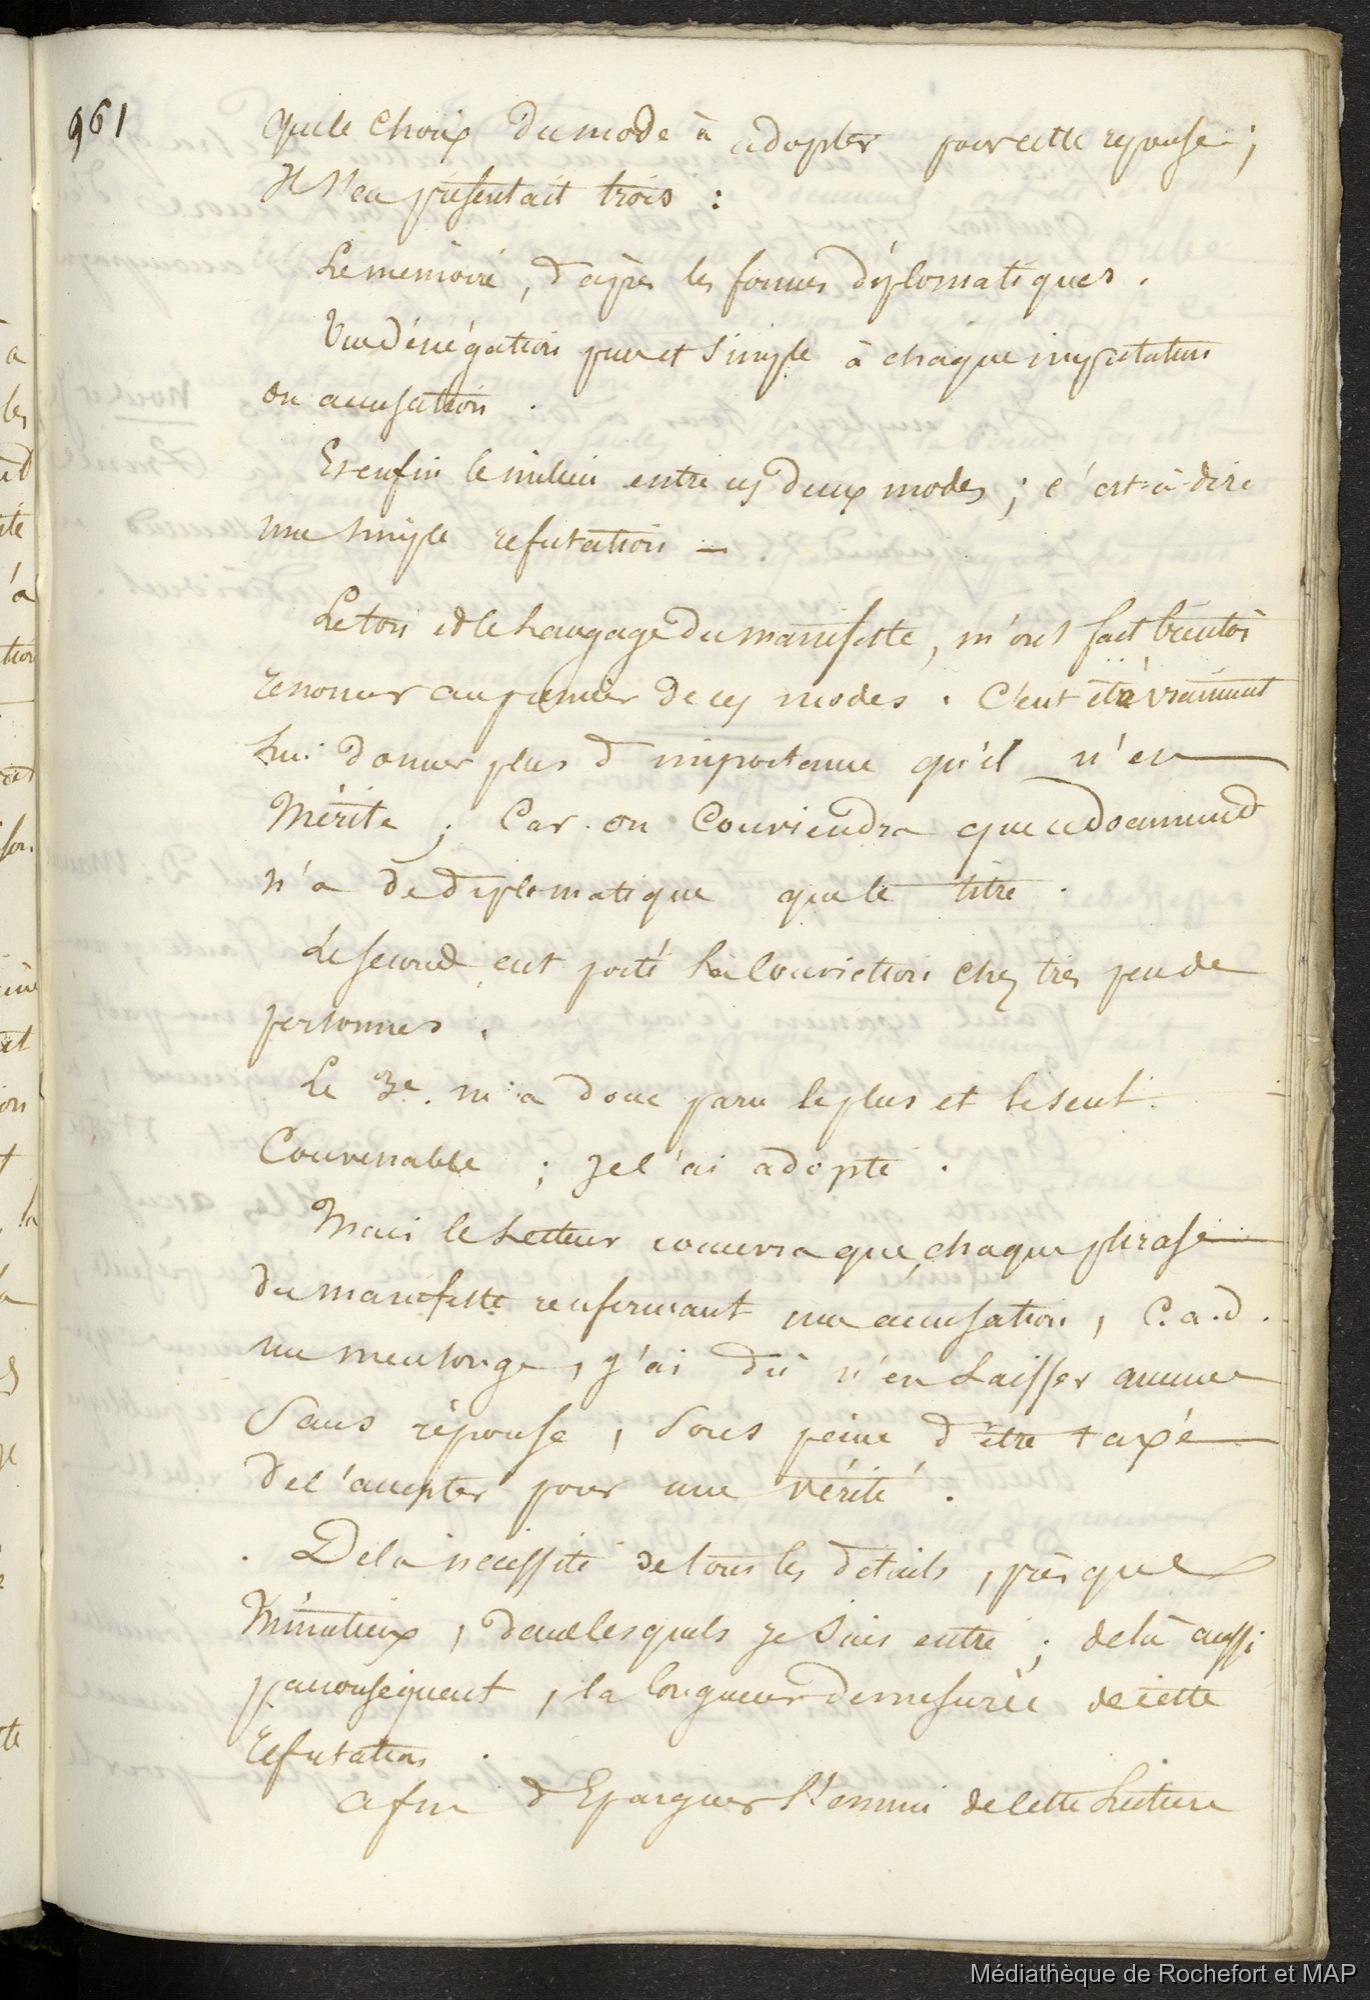 961
que le choix du mode à adopter pour cette reponse ;
Il s'en présentait trois :
Le mémoire, d'après les formes diplomatiques .
Une dénégation pure et simple à chaque imputation
ou accusation .
Et enfin le milieu entre ces deux modes ; c'est-à-dire
une simple refutation — .
Le ton et le Langage du manifeste, m'ont fait bientôt
renoncer au premier de ces modes . C'eut été vraiment
Lui donner plus d'importance qu'il n'en
Mérite ; Car on Conviendra que ce document
n'a de diplomatique que le titre .
Le second eut porté la Conviction chez très peu de
personnes .
Le 3e. m'a donc paru le plus et le seul
Convenable ; je l'ai adopté .
Mais le Lecteur concevra que chaque phrase
du manifeste renfermant une accusation, C. a. d.
un mensonge, j'ai dû n'en Laisser aucune
Sans réponse, Sous peine d'être taxé
de l'accepter pour une vérité .
. De la nécessité de tous les détails, presque
Minutieux, dans lesquels je suis entré ; de là aussi
par conséquent, la longueur demesurée de cette
refutation .
afin d'Epargner l'ennui de cette Lecture
Médiathèque de Rochefort et MAP